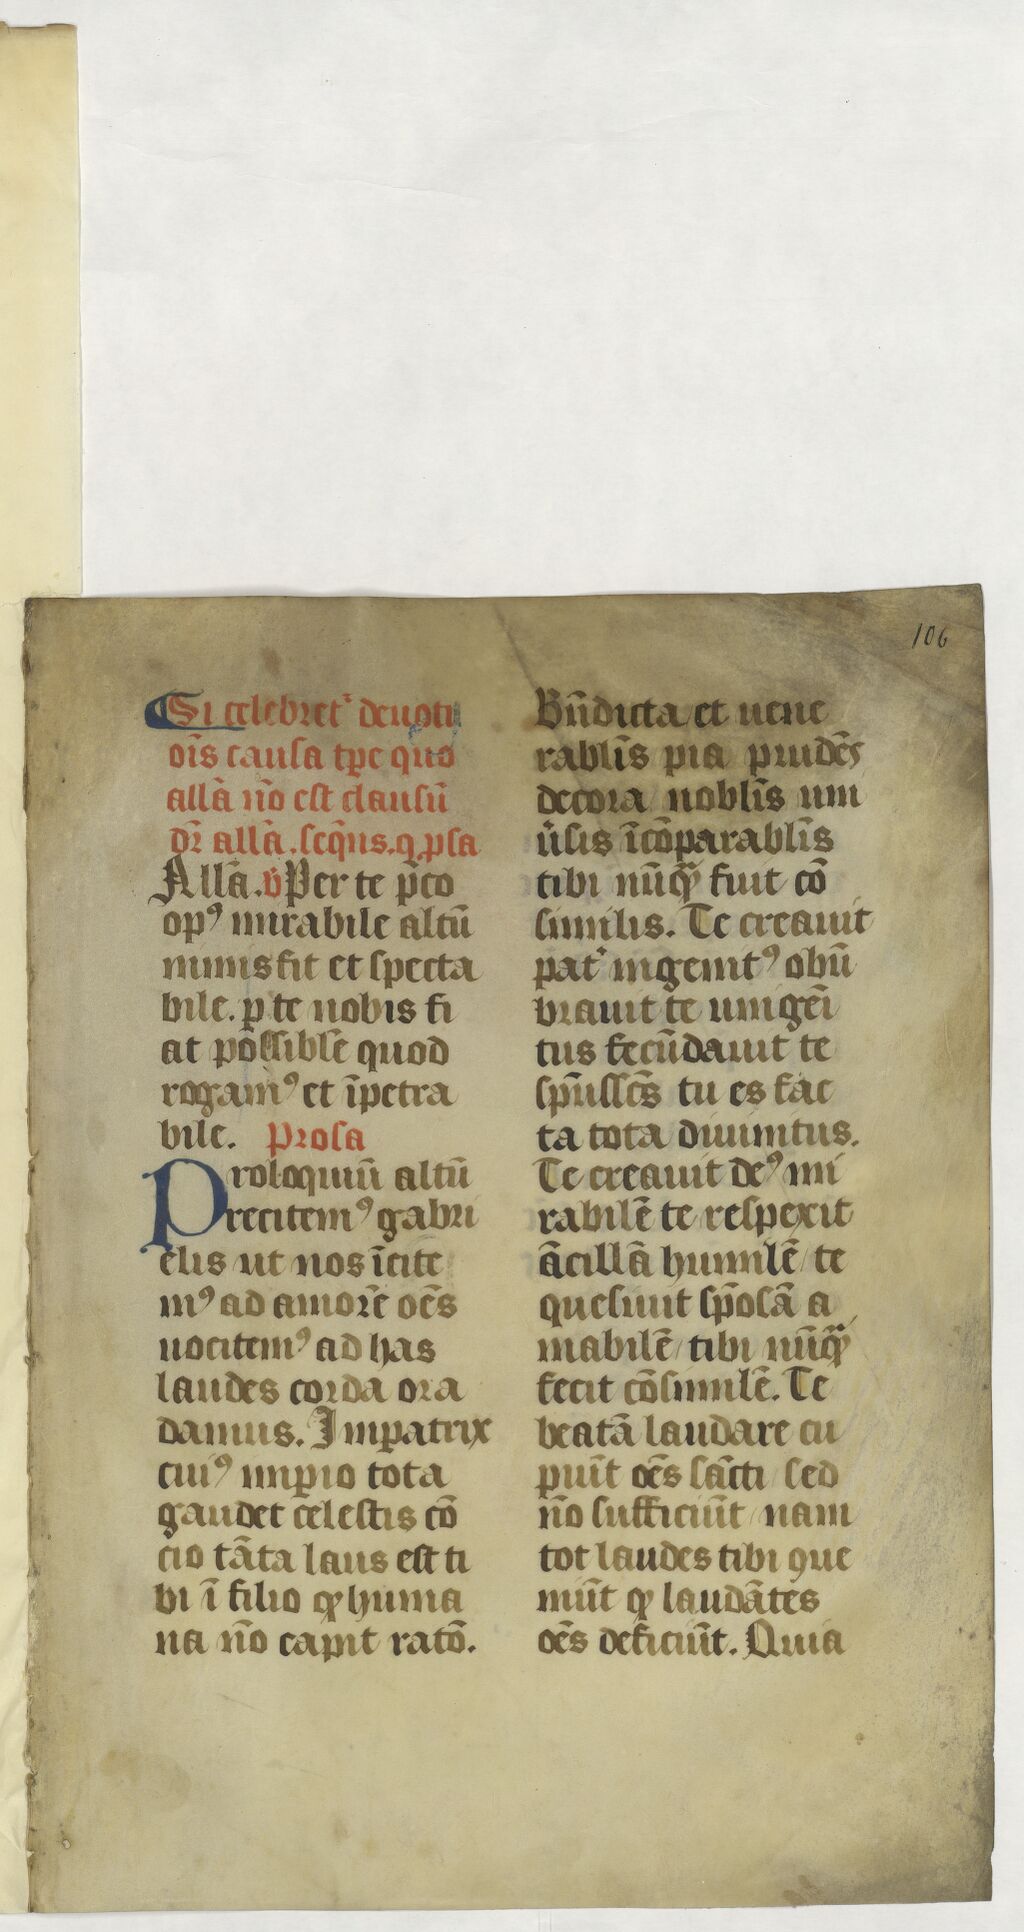 106
Si celebret᷑ deuoti
oı̄s causa tp̄e quo
all̄a n̄o est clausū
dr̄ all̄a . seq̄ns . q . p̱sa
All̄a . v̄ Per te p̄co
opꝰ mirabile altū
nimis fit et specta
bile . p̱ te nobis fi
at possiblē quod
rogam̄ꝰ et īpetra
bile . Prosa
Proloquiū altū
recitemꝰ gabri
elis ut nos īcite
mꝰ ad amorē oēs
uocitemꝰ ad has
laudes corda ora
damus . Imp̱atrix
cuiꝰ imp̱io tota
gaudet celestis cō
cio tāta laus est ti
bi ī filio qꝫ huma
na nō capit ratō .
Bn̄dicta et uene
rabil̄is pia prudēs
decora nobil̄is uni
u̇lsis īcōparabl̄is
tibi nūqꝫ fuit cō
similis . Te creauit
pat᷑ ingenitꝰ obū
brauit te unigēi
tus fecūdauit te
sp̄ussc̄s tu es fac
ta tota diuinitus .
Te creauit deꝰ mi
rabilē te respexit
ācillā humilē / te
quesiuit sp̄osā a
mabilē / tibi nūqꝫ
fecit cōsimilē . Te
beatā laudare cu
piūt oēs sāc̄ti / sed
n̄o sufficiūt / nam
tot laudes tibi ꝯue
niūt qꝫ laudātes
oēs deficiūt . Quia